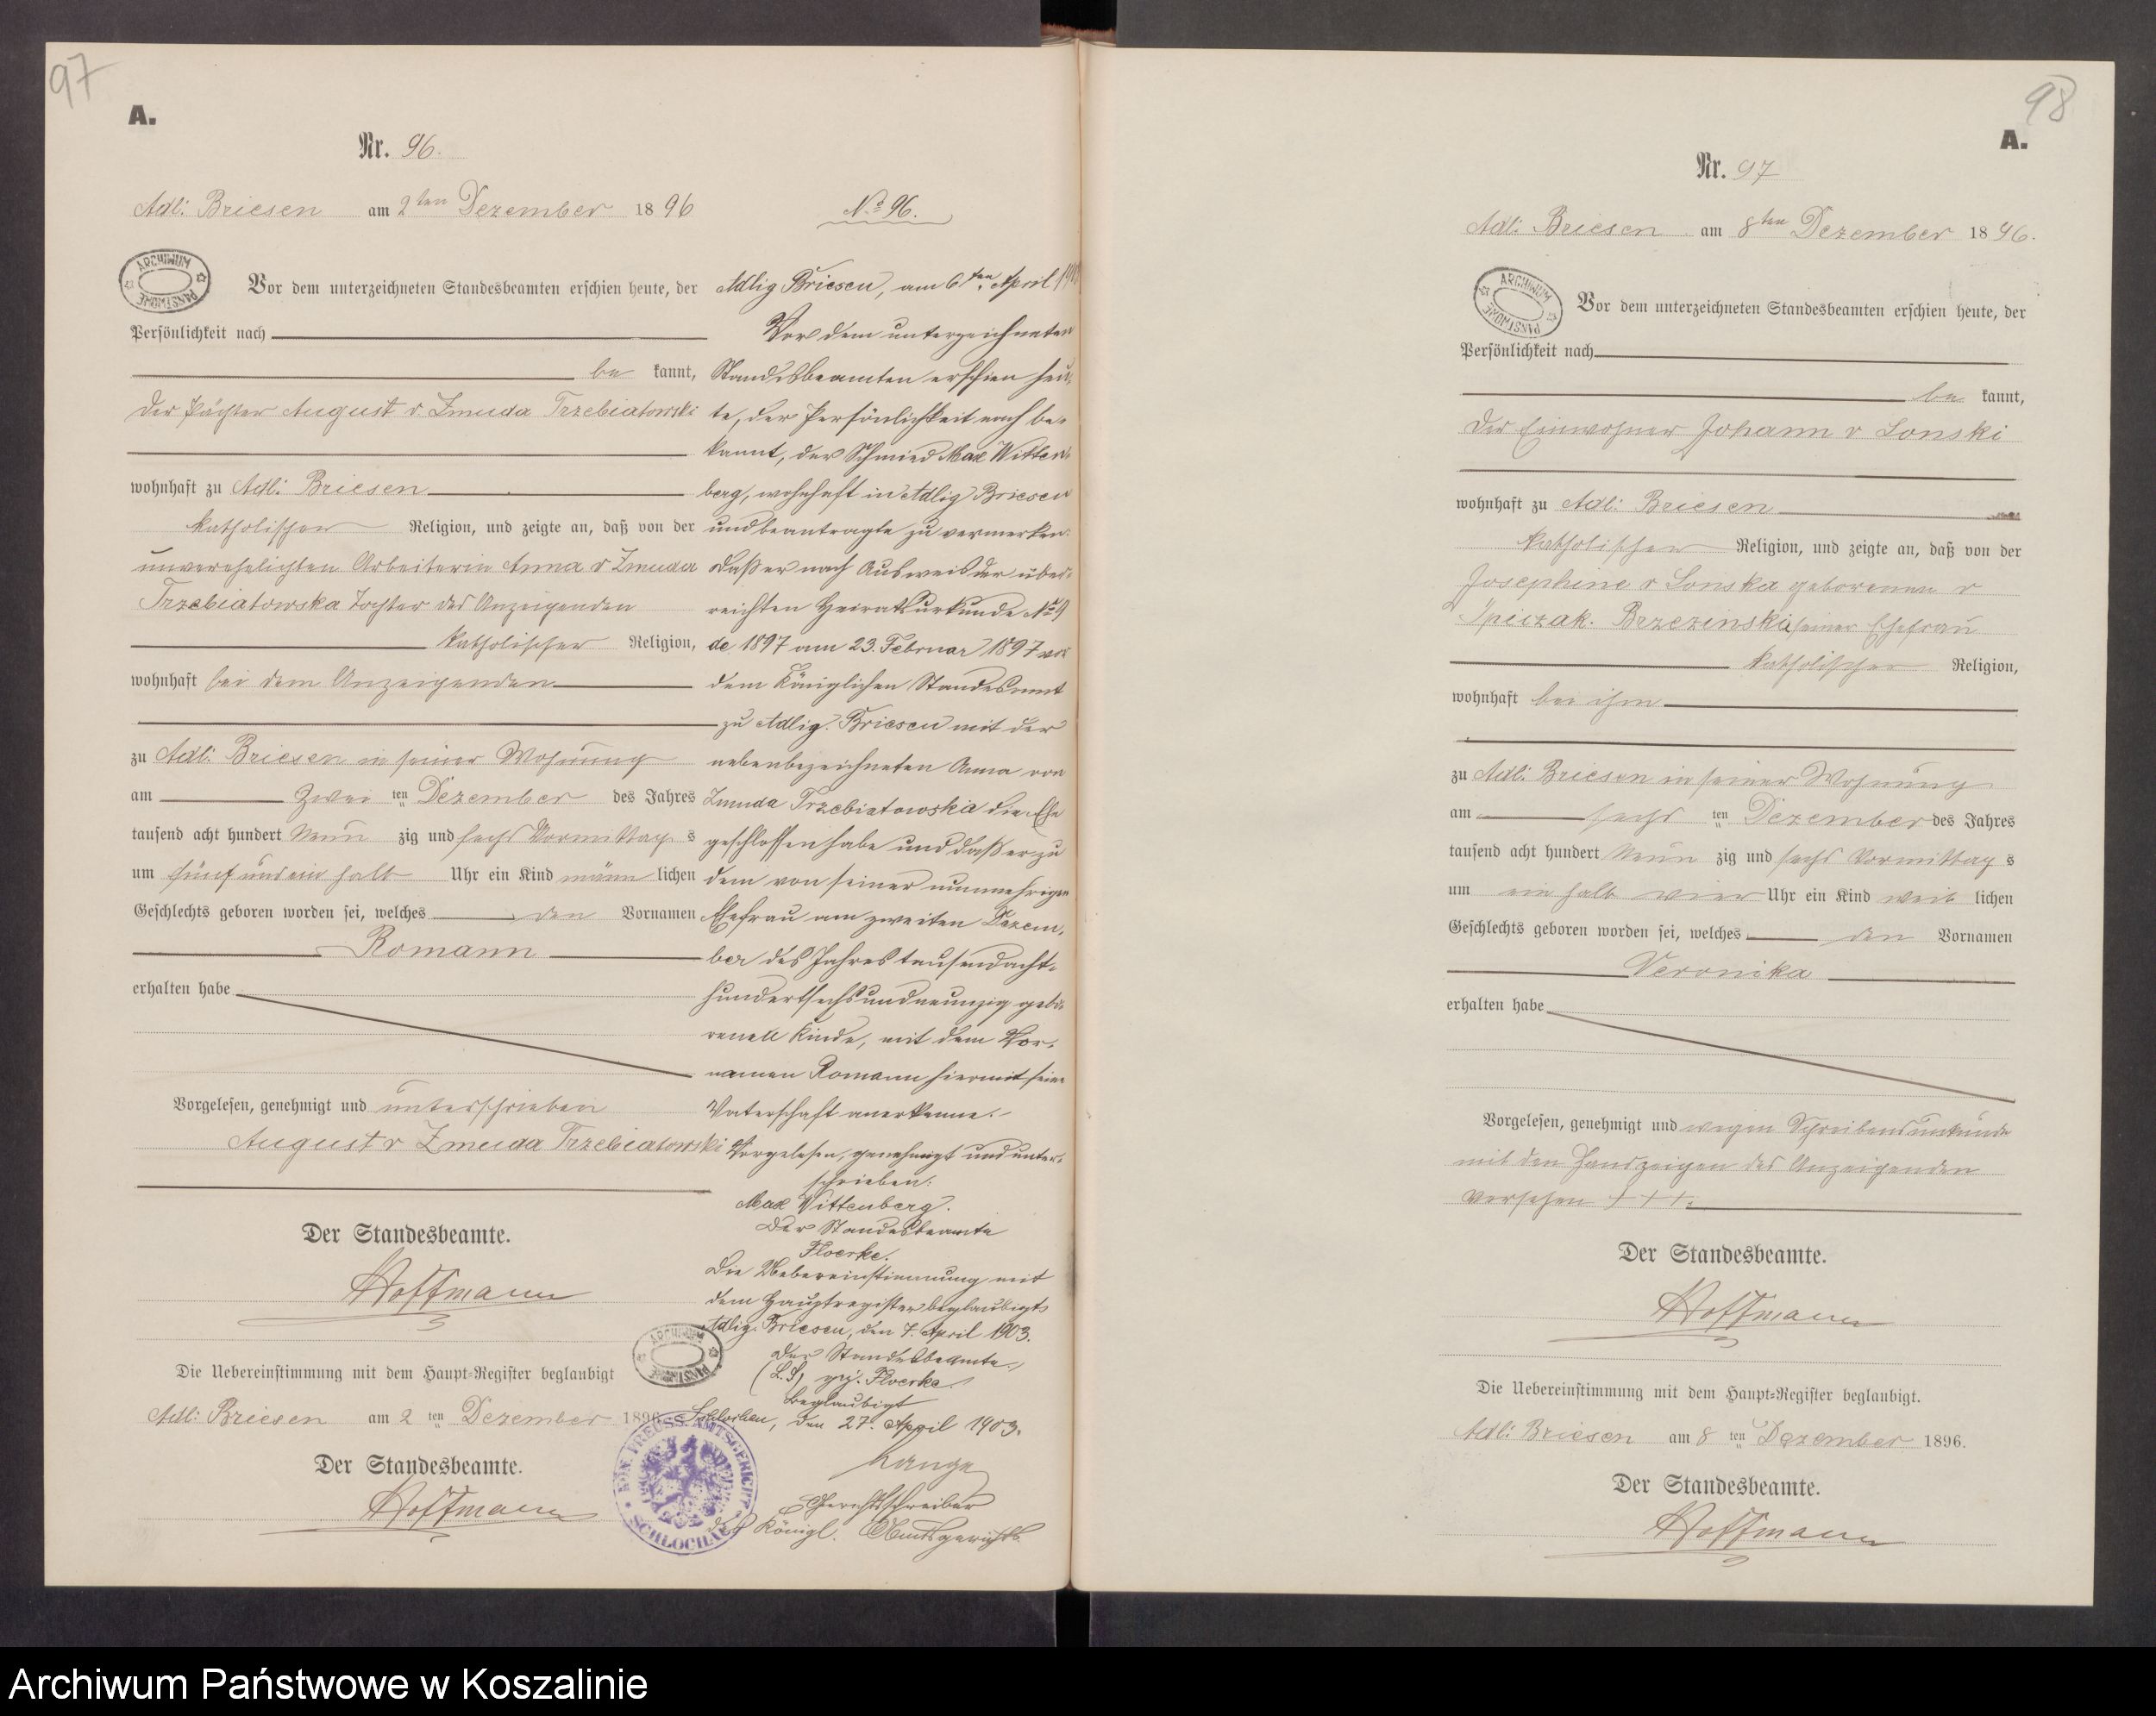 97
A.
Nr. 96.
Adl: Briesen am 2ten Dezember 1896
Vor dem unterzeichneten Standesbeamten erschien heute, der
Persönlichkeit nach
be kannt,
der Pächter August v Zmuda Trzebiatowski
wohnhaft zu Adl: Briesen
katholischer Religion, und zeigte an, daß von der
unverehelichten Arbeiterin Anna v Zmuda
Trzebiatowska Tochter des Anzeigenden
katholischer Religion,
wohnhaft bei dem Anzeigenden
zu Adl: Briesen in seiner Wohnung
am zwei ten Dezember des Jahres
tausend acht hundert neun zig und sechs Vormittag s
um fünf und ein halb Uhr ein Kind männ lichen
Geschlechts geboren worden sei, welches den Vornamen
Romann
erhalten habe
Vorgelesen, genehmigt und unterschrieben
August v Zmuda Trzebiatowski
Der Standesbeamte.
Hoffmann
Die Uebereinstimmung mit dem Haupt-Register beglaubigt
Adl: Briesen am 2 ten Dezember 1896
Der Standesbeamte.
Hoffmann
No 96.
Adlig Briesen, am 6ten April
Vor dem unterzeichneten
Standesbeamten erschien heu-
te, der Persönlichkeit nach be-
kannt, der Schmied Max Witten-
berg, wohnhaft in Adlig Briesen
und beantragte zu vermerken
daß er nach Ausweis der über-
reichten Heiratsurkunde No 9
de 1897 am 23. Februar 1897 vor
dem Königlichen Standesamt
zu Adlig. Briesen mit der
nebenbezeichneten Anna von
Zmuda Trzebiatowska die Ehe
geschlossen habe und daß er zu
dem von seiner nunmehrigen
Ehefrau am zweiten Dezem-
ber des Jahres tausendacht-
hundertsechsundneunzig gebo-
renen Kinde, mit dem Vor-
namen Romann hiermit seine
Vaterschaft anerkenne.
Vorgelesen, genehmigt und unter-
schrieben:
Max Wittenberg.
Der Standesbeamte
Floerke.
Die Uebereinstimmung mit
dem Hauptregister beglaubigt
Adlig. Briesen, den 7. April 1903.
Der Standesbeamte.
(L.S) gez. Floerke.
Beglaubigt
Schlochau, den 27. April 1903.
Lange
Gerichtsschreiber
des Königl. Amtsgerichts.
KÖN. PREUSS. AMTSGERICHT
SCHLOCHAU
ARCHIWUM PAŃSTWOWE
ARCHIWUM PAŃSTWOWE
98
A.
Nr. 97
Adl: Briesen am 8ten Dezember 1896.
ARCHIWUM PAŃSTWOWE
Vor dem unterzeichneten Standesbeamten erschien heute, der
Persönlichkeit nach
be kannt,
der Einwohner Johann v Lonski
wohnhaft zu Adl: Briesen
katholischer Religion, und zeigte an, daß von der
Josephine v Lonska geborenen v
Spiczak. Brzezinska seiner Ehefrau
katholischer Religion,
wohnhaft bei ihm
zu Adl: Briesen in seiner Wohnung
am sechs ten Dezember des Jahres
tausend acht hundert neun zig und sechs Vormittag s
um ein halb vier Uhr ein Kind weib lichen
Geschlechts geboren worden sei, welches den Vornamen
Veronika
erhalten habe
Vorgelesen, genehmigt und wegen Schreibensunkunde
mit den Handzeigen des Anzeigenden
versehen + + +.
Der Standesbeamte.
Hoffmann
Die Uebereinstimmung mit dem Haupt-Register beglaubigt.
Adl: Briesen am 8 ten Dezember 1896.
Der Standesbeamte.
Hoffmann
Archiwum Państwowe w Koszalinie